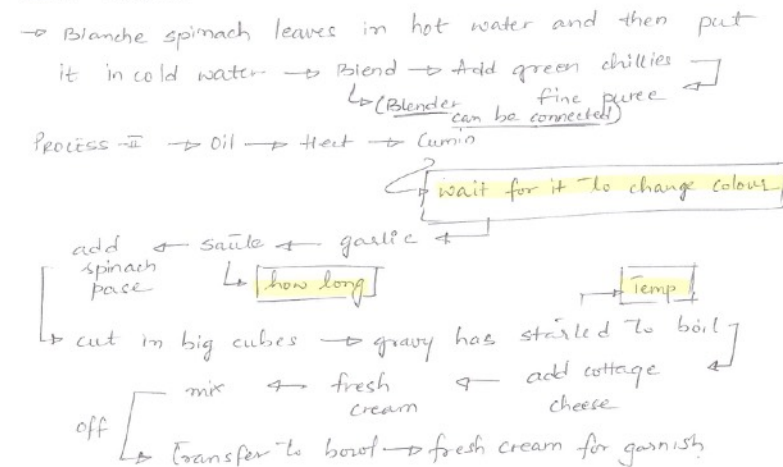 → Blanche spinach leaves in hot water and then put
it in cold water → Blend → Add green chillies
↳ (Blender fine puree
can be connected)
Process-II → Oil → Heet → Cumin
wait for it to change colour
add ← saute ← garlic
spinach
pase ↳ how long Temp
↳ cut in big cubes → gravy has started to boil
mix ← fresh ← add cottage
cream cheese
off
↳ transfer to bowl → fresh cream for garnish